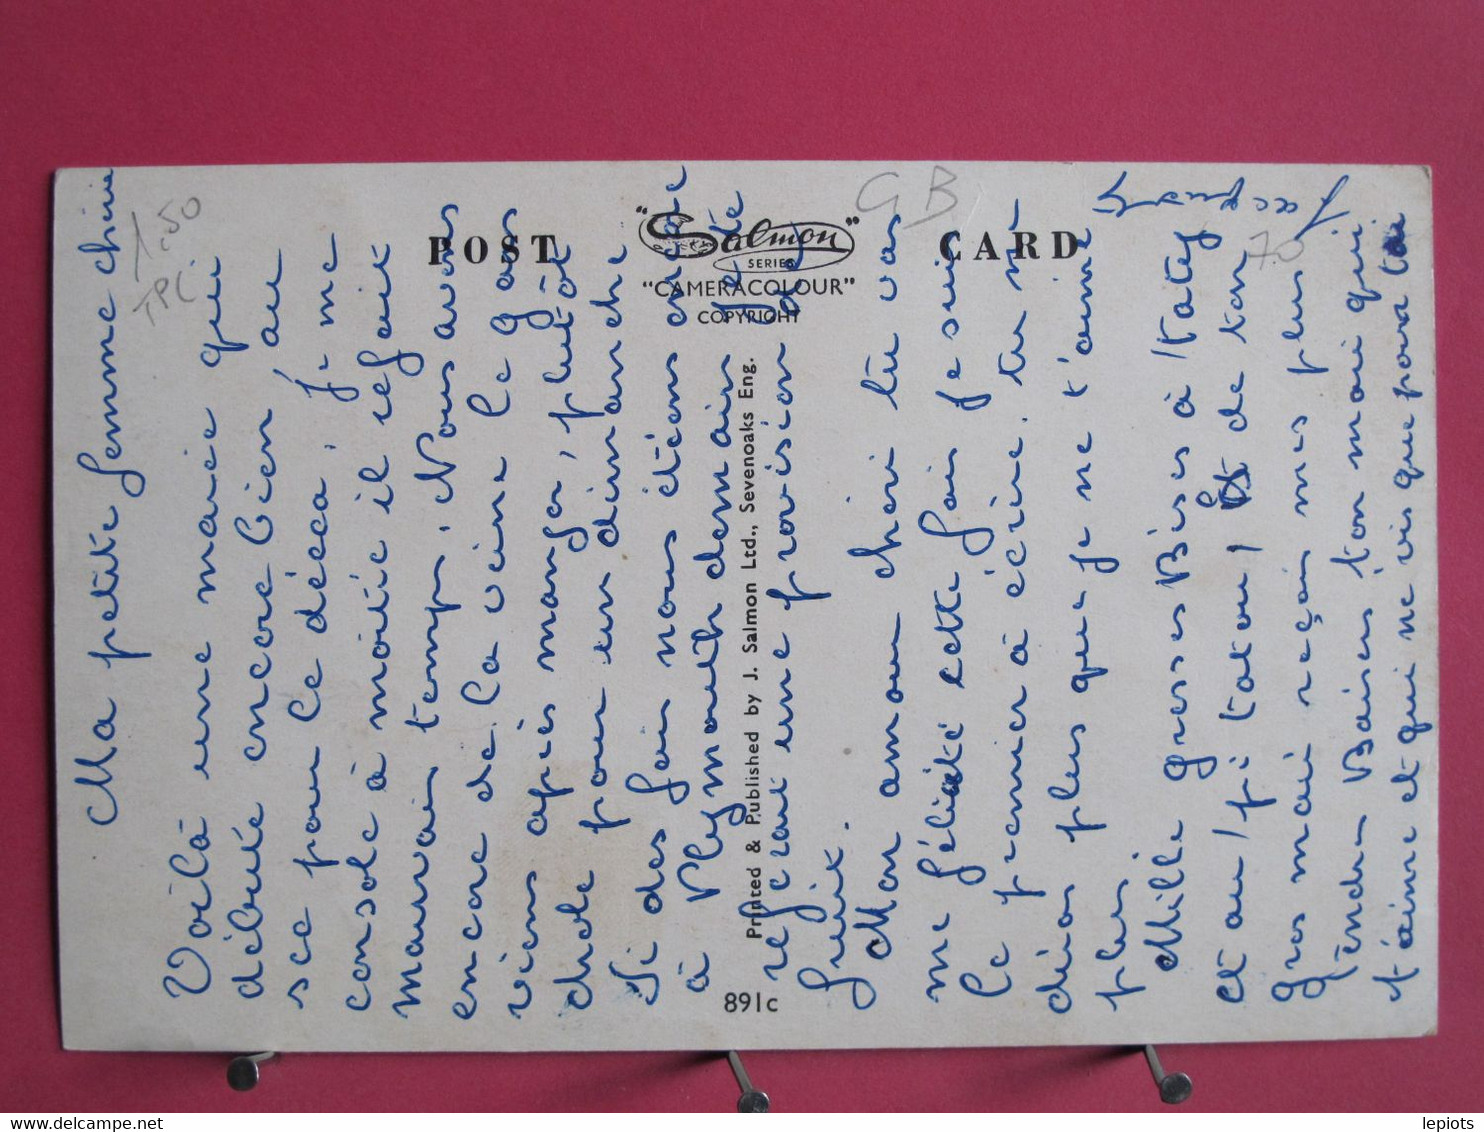 Ma petite femme chérie
Voilà une marée qui
débute encore bien, au
sec pour le décca, je me
console à moitié il refait
mauvais temps, Nous avons
encore de la veine le gas
viens après manger, plutôt
drole pour un dimanche
Si des fois nous étions encore
à Plymouth demain
refont une provision de
fruit.
Mon amour chéri tu vas
me félicité cette fois je suis
le premier à écrire. tu ne
diras plus que je ne t'aime
plus
Mille grosses Bises à Taty
et au pitatou, et de ton
gros mari reçois mes plus
tendres Baisers ton moi qui
t'aime et qui ne vis que pour toi
1.50
TPC
GB
70
POST CARD
"Salmon"
SERIES
"CAMERACOLOUR"
COPYRIGHT
Printed & Published by J. Salmon Ltd., Sevenoaks Eng.
891c
delcampe.net
lepiots